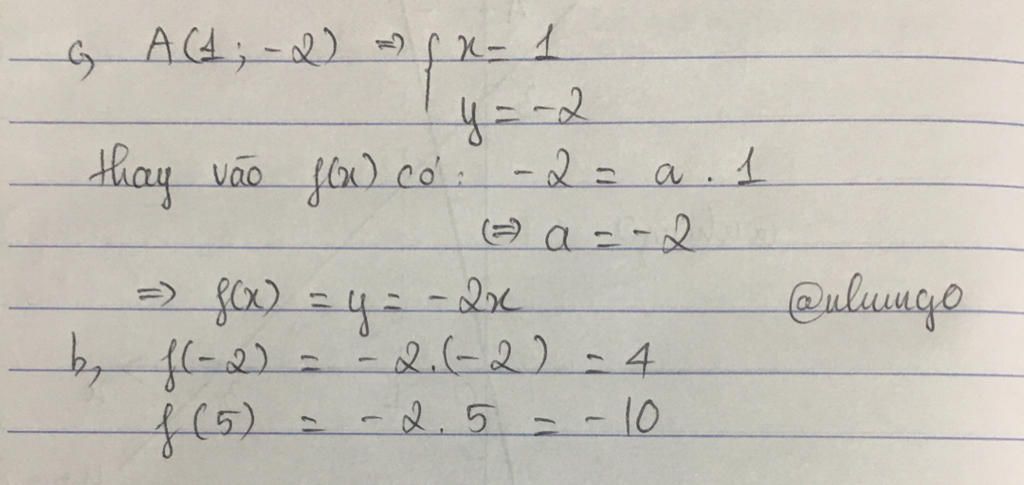 c, A(1; -2) => { x = 1
y = -2
thay vào f(x) có: -2 = a . 1
<=> a = -2
=> f(x) = y = -2x
b, f(-2) = -2.(-2) = 4
f(5) = -2. 5 = -10